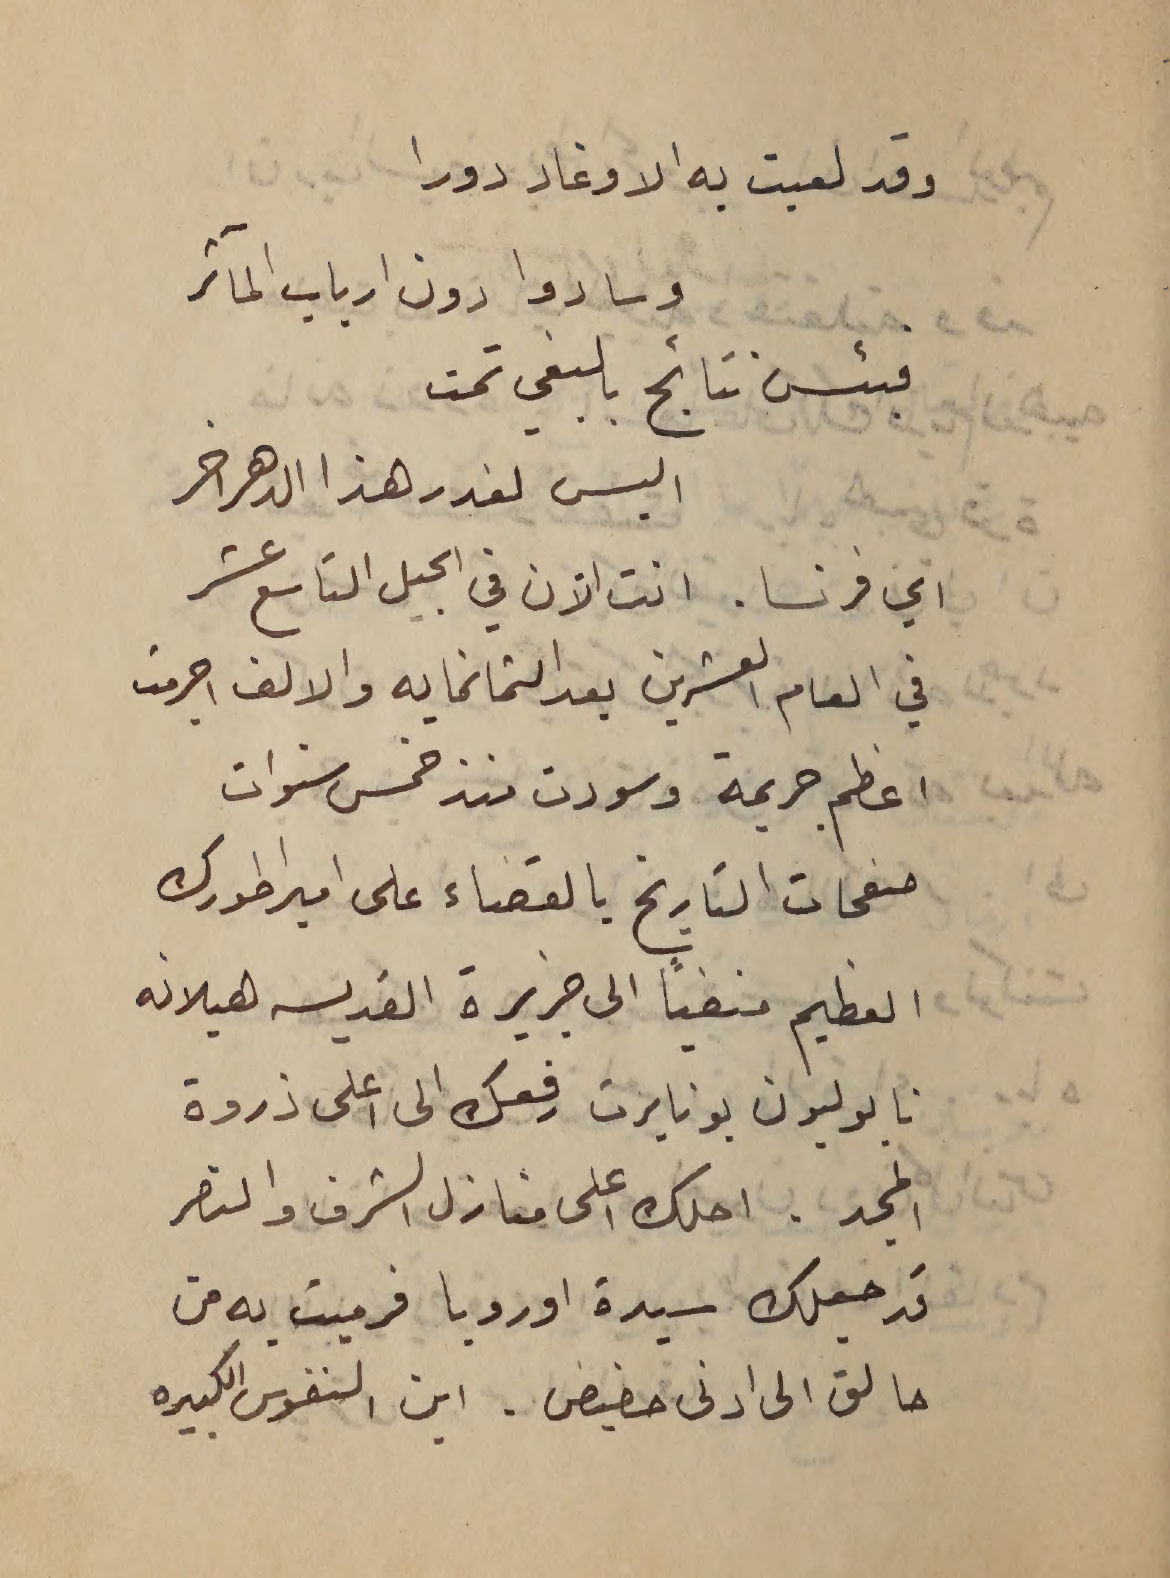 وقد لعبت به الاوغاد دورا
وسادوا دون ارباب المآثر
فبئس نتائج بالبغي تمت
اليس لغدر هذا الدهر اخر
اي فرنسا . انت الآن في الجيل التاسع عشر
في العام العشرين بعد الثمانمايه والالف اجرمت
اعظم جريمة وسودت منذ خمس سنوات
صفحات التاريخ بالقضاء على امبراطورك
العظيم منفياً الى جزيرة القديسه هيلانه
نابوليون بونابرت رفعك الى اعلى ذروة
المجد . احلك اعلى منازل الشرف والنصر
قد جعلك سيدة اوروبا فرميت به من
حالق الى ادنى حضيض . اين النفوس الكبيره